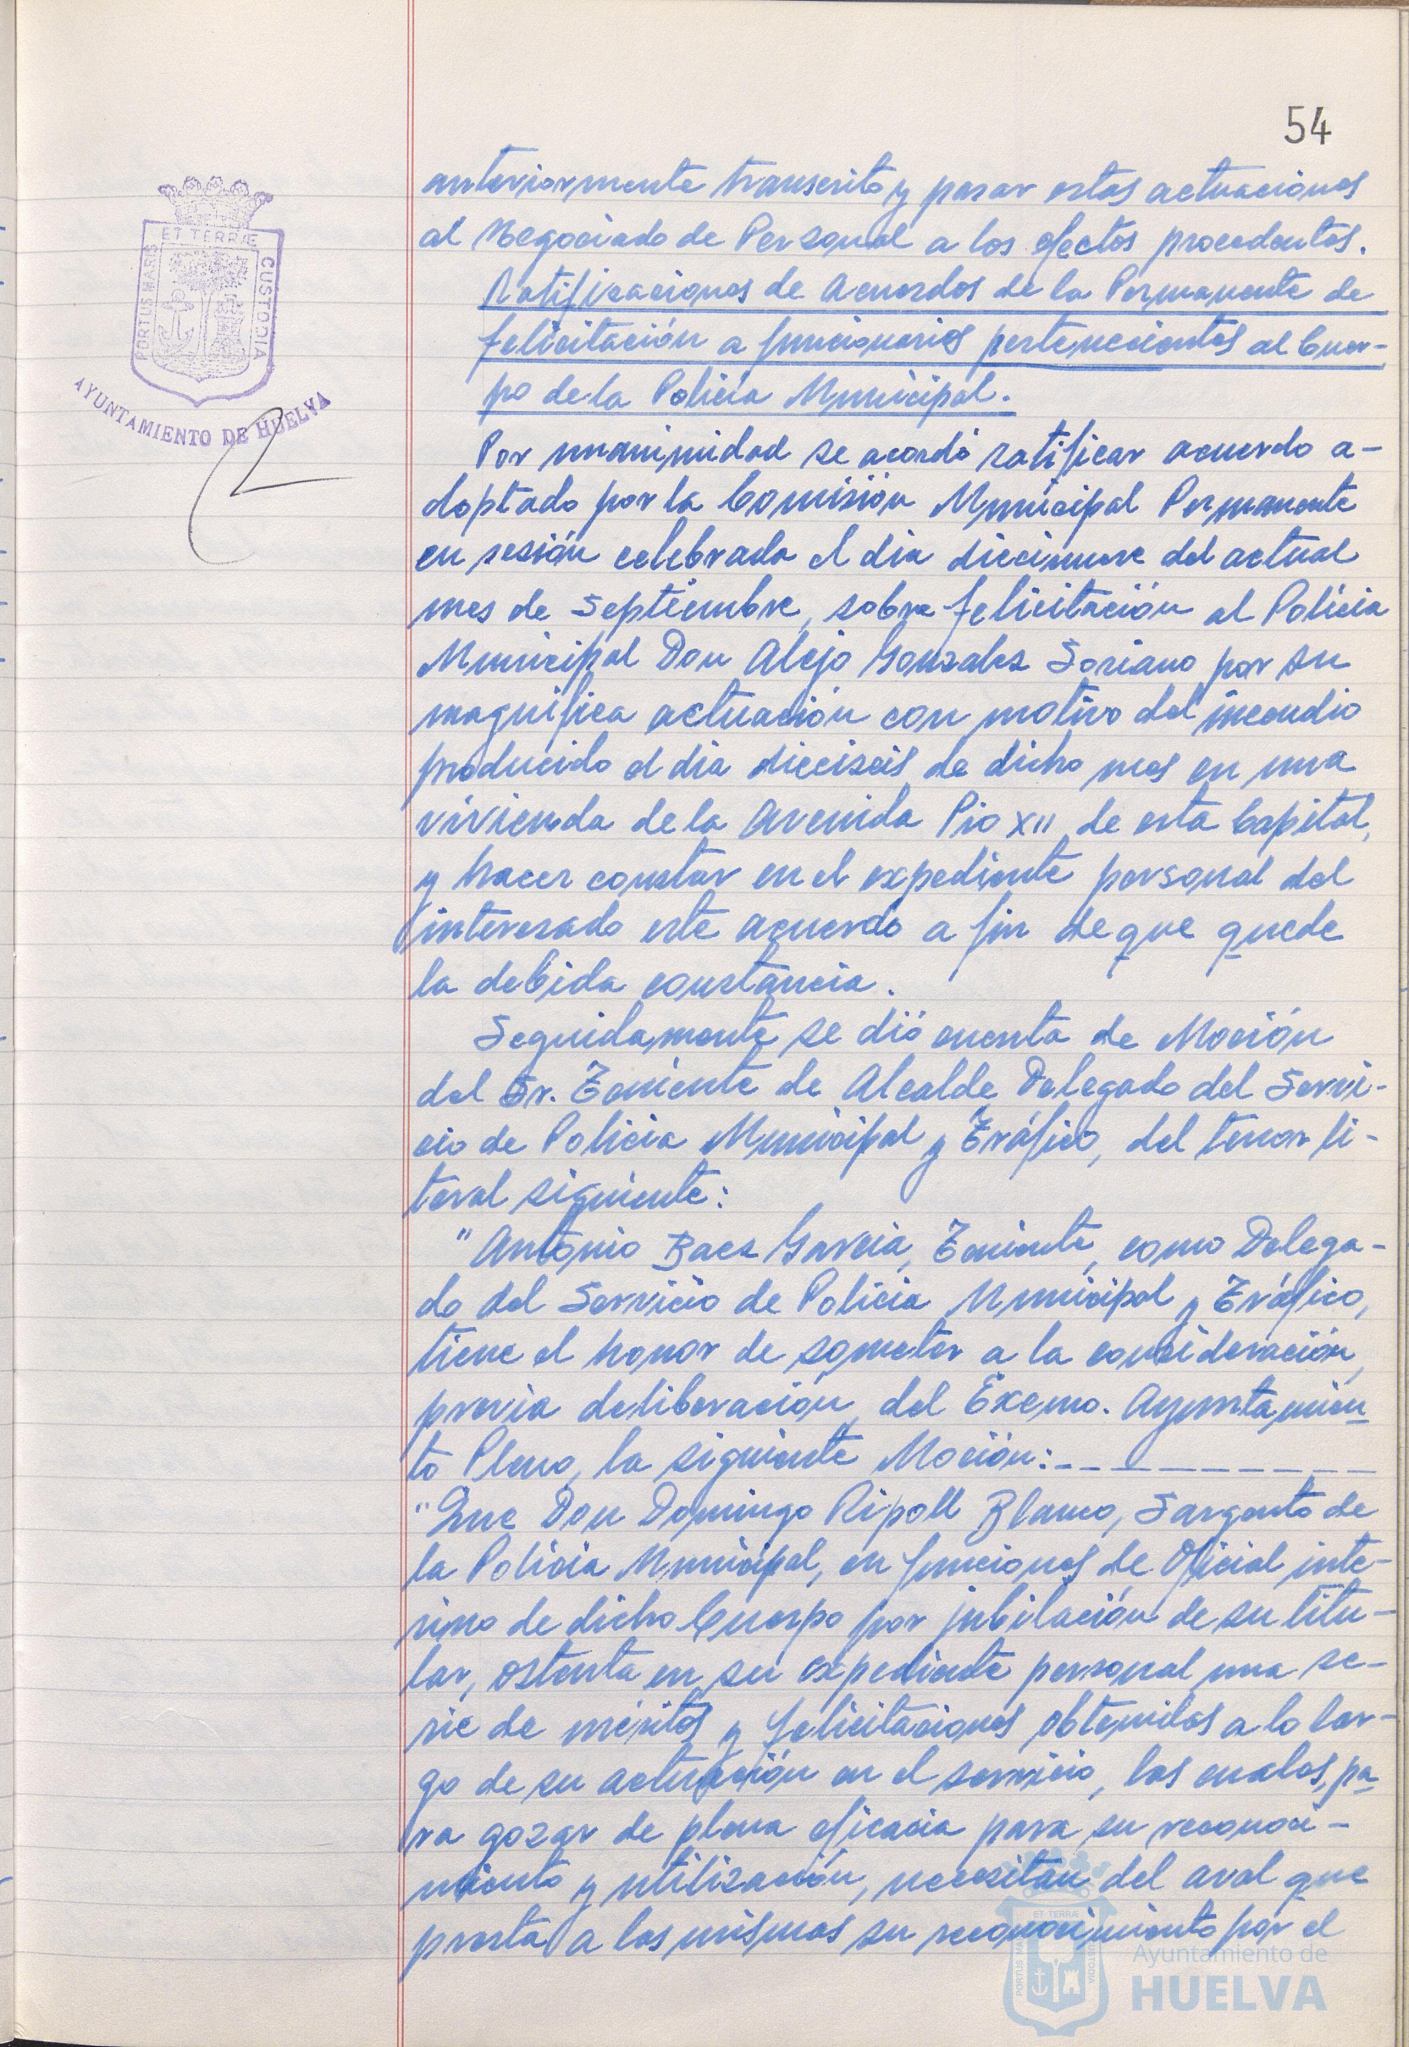 54
ET TERRÆ
PORTUS MARIS
CUSTODIA
AYUNTAMIENTO DE HUELVA
anteriormente transcrito y pasar estas actuaciones
al Negociado de Personal a los efectos procedentes.
Ratificaciones de Acuerdos de la Permanente de
felicitación a funcionarios pertenecientes al Cuer-
po de la Policia Municipal.
Por unanimidad se acordó ratificar acuerdo a-
doptado por la Comisión Municipal Permanente
en sesión celebrada el dia diecinueve del actual
mes de Septiembre, sobre felicitación al Policia
Municipal Don Alejo Gonzalez Soriano por su
magnifica actuación con motivo del incendio
producido el dia dieciseis de dicho mes en una
vivienda de la Avenida Pio XII, de esta Capital,
y hacer constar en el expediente personal del
interesado este acuerdo a fin de que quede
la debida constancia.
Seguidamente se dió cuenta de Moción
del Sr. Teniente de Alcalde Delegado del Servi-
cio de Policia Municipal y Tráfico, del tenor li-
teral siguiente:
"Antonio Baez Garcia, Teniente, como Delega-
do del Servicio de Policia Municipal y Tráfico,
tiene el honor de someter a la consideración,
previa deliberación, del Excmo. Ayuntamien-
to Pleno, la siguiente Moción:- - - - - - - - -
"Que Don Domingo Ripoll Blanco, Sargento de
la Policia Municipal, en funciones de Oficial inte-
rino de dicho Cuerpo por jubilación de su titu-
lar, ostenta en su expediente personal una se-
rie de méritos y felicitaciones obtenidas a lo lar-
go de su actuación en el servicio, las cuales, pa
ra gozar de plena eficacia para su reconoci-
miento y utilización, necesitan del aval que
presta a las mismas su reconocimiento por el
ET TERRÆ
Ayuntamiento de
HUELVA